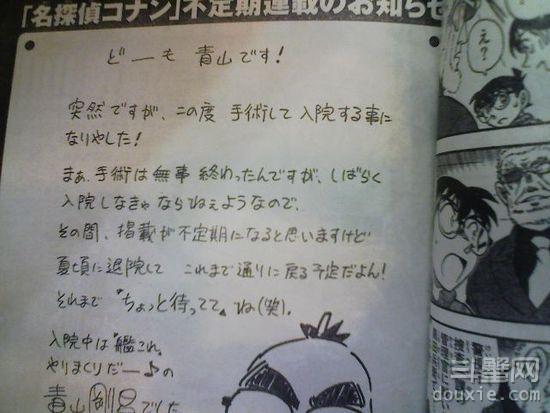 「名探偵コナン」不定期連載のお知らせ
どーも 青山です!
突然ですが、この度 手術して入院する事に
なりやした!
まぁ、手術は無事 終わったんですが、しばらく
入院しなきゃならねぇようなので、
その間、掲載が不定期になると思いますけど
夏頃に退院して これまで通りに戻る予定だよん!
それまで〝ちょっと待ってて〟ね(笑)。
入院中は〝艦これ〟
やりまくりだー♪の
青山剛昌でした
え?
斗墅网
douxie.com